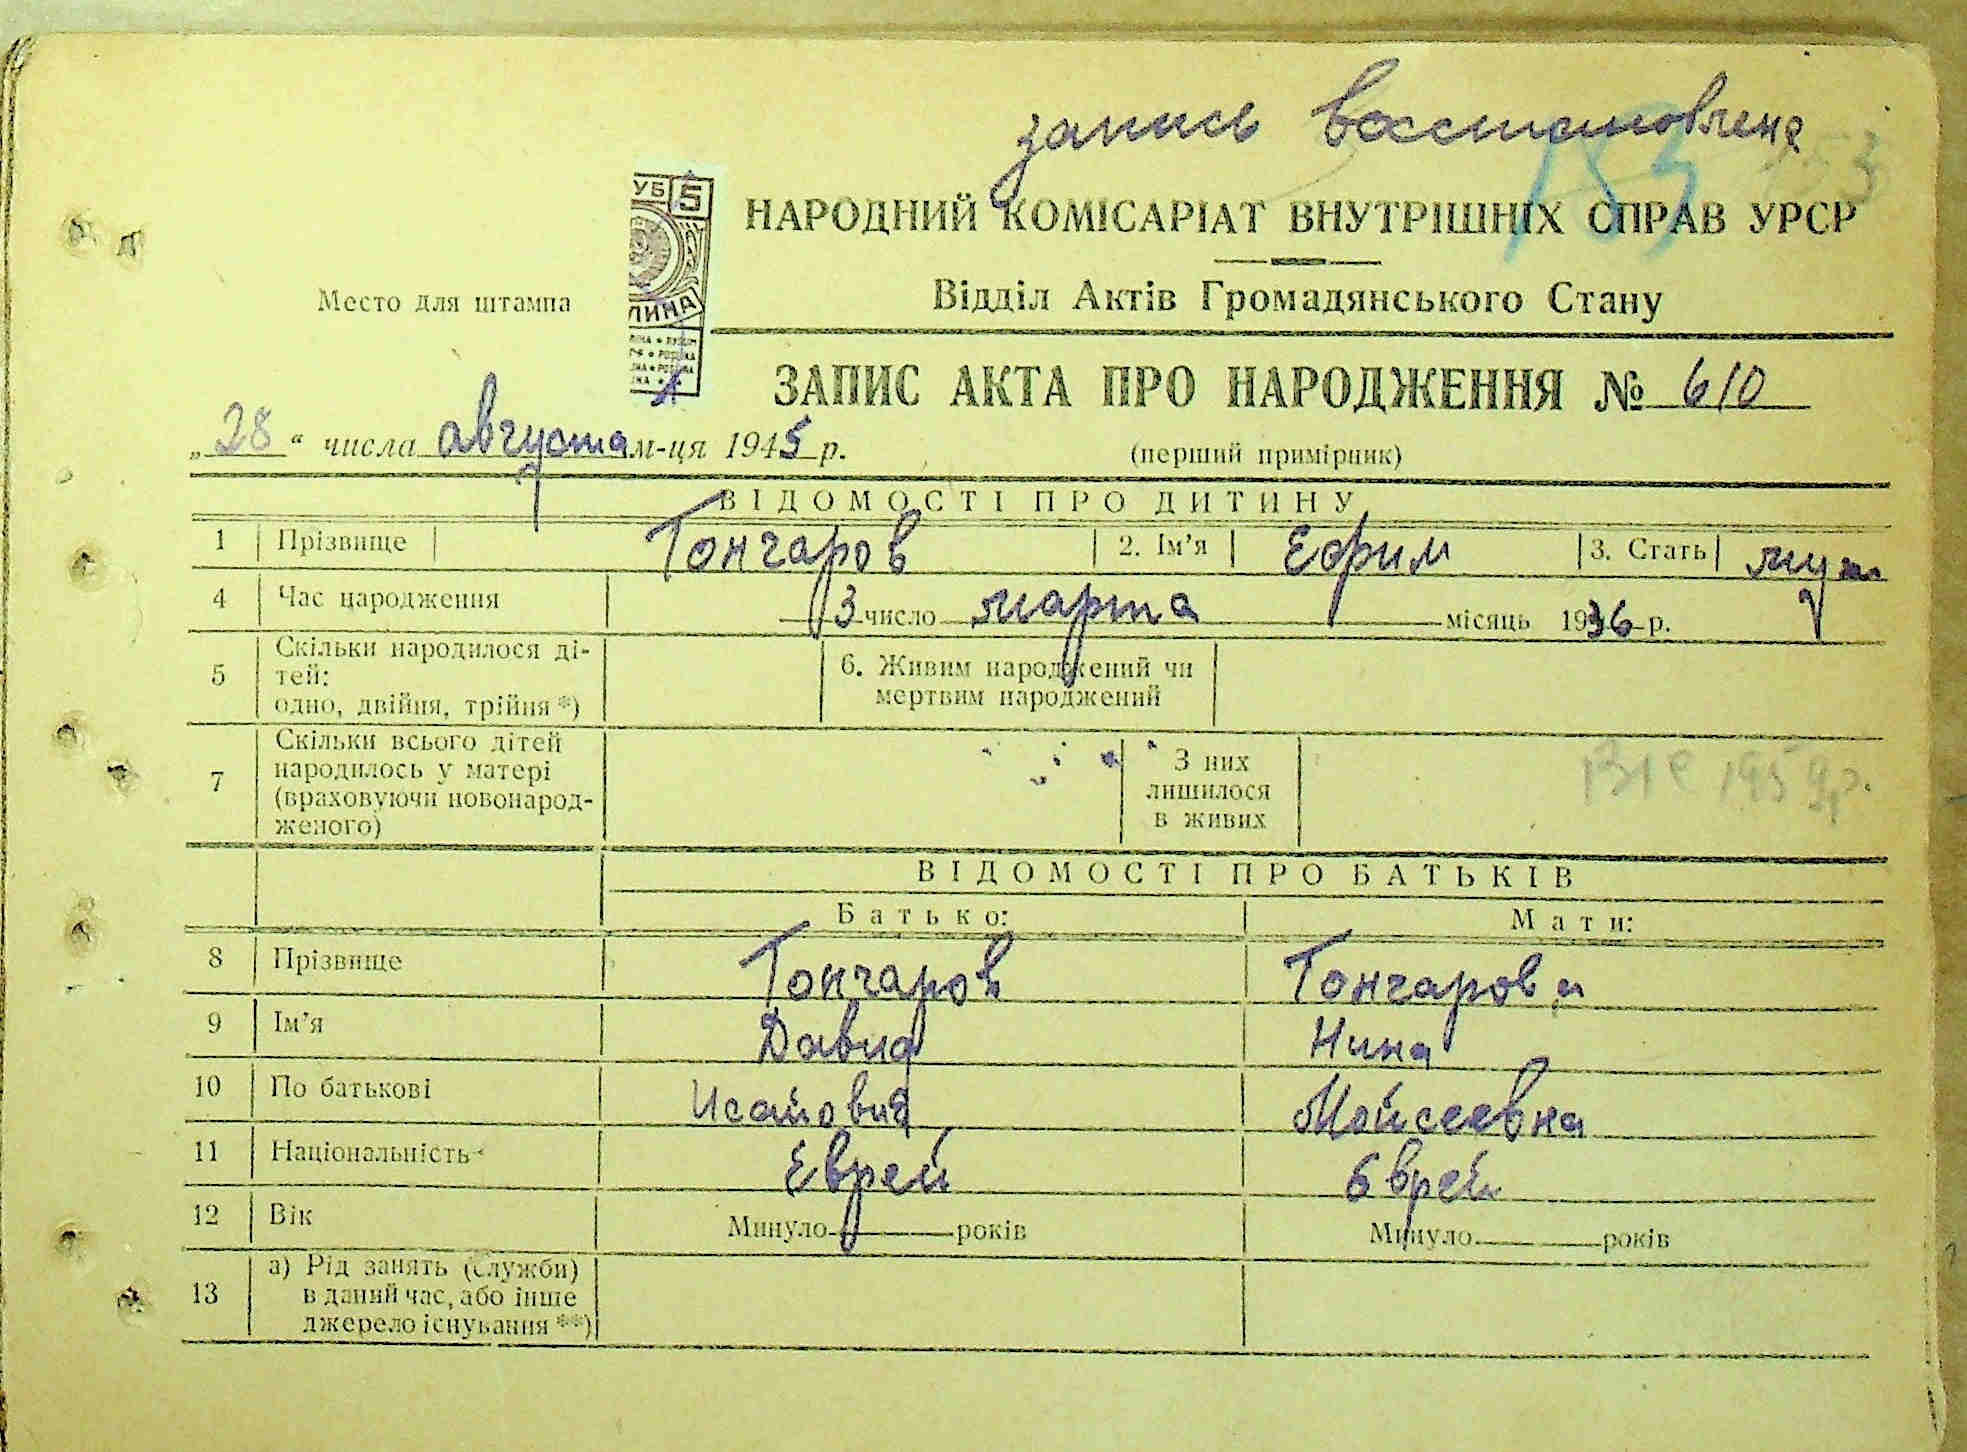 запись восстановлена
153
УБ 5
ЛИНА
НАРОДНИЙ КОМІСАРІАТ ВНУТРІШНІХ СПРАВ УРСР
Место для штампа
Відділ Актів Громадянського Стану
ЗАПИС АКТА ПРО НАРОДЖЕННЯ № 610
„28“ числа августа м-ця 1945 р.
(перший примірник)
ВІДОМОСТІ ПРО ДИТИНУ
1 Прізвище Гончаров 2. Ім’я Ефрим 3. Стать муж
4 Час народження 3 число марта місяць 1936 р.
5 Скільки народилося ді-
тей:
одно, двійня, трійня *)
6. Живим народжений чи
мертвим народжений
7 Скільки всього дітей
народилось у матері
(враховуючи новонарод-
женого)
З них
лишилося
в живих
ВІДОМОСТІ ПРО БАТЬКІВ
Батько: Мати:
8 Прізвище Гончаров Гончарова
9 Ім’я Давид Нина
10 По батькові Исайович Мойсеевна
11 Національність Еврей Еврей
12 Вік Минуло років Минуло років
13 а) Рід занять (служби)
в даний час, або інше
джерело існування **)